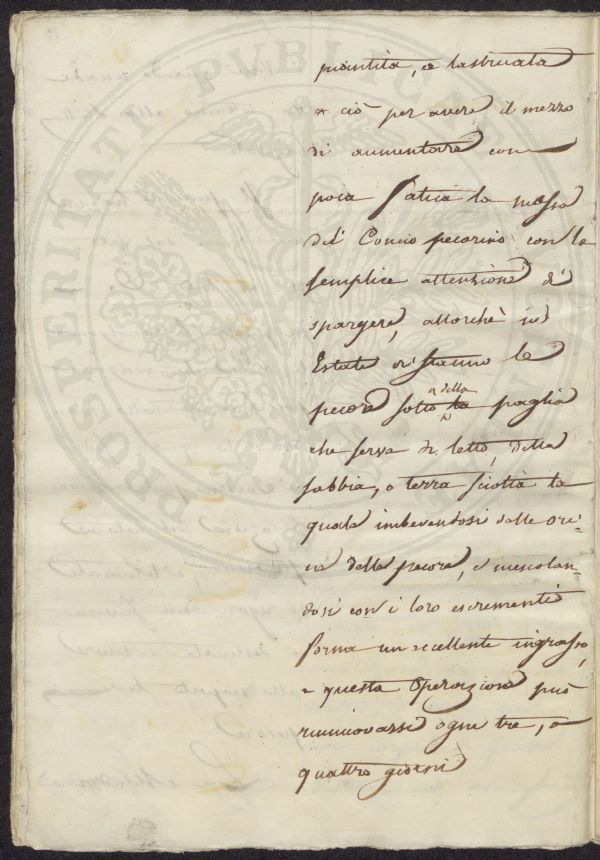 piantita, e lastricata
e ciò per avere il mezzo
di aumentare con
poca fatica la massa
del Concio pecorino con la
semplice attenzione di
spargere, allorchè in
Estate vi stanno le
pecore sotto la della paglia
che serva di letto, della
sabbia, o terra sciolta la
quale imbevendosi dalle ori-
ne delle pecore, e mescolan-
dosi con i loro escrementi
forma un eccellente ingrasso,
e questa Operazione può
rinnuovarsi ogni tre, o
quattro giorni
PROSPERITATI PUBLICAE